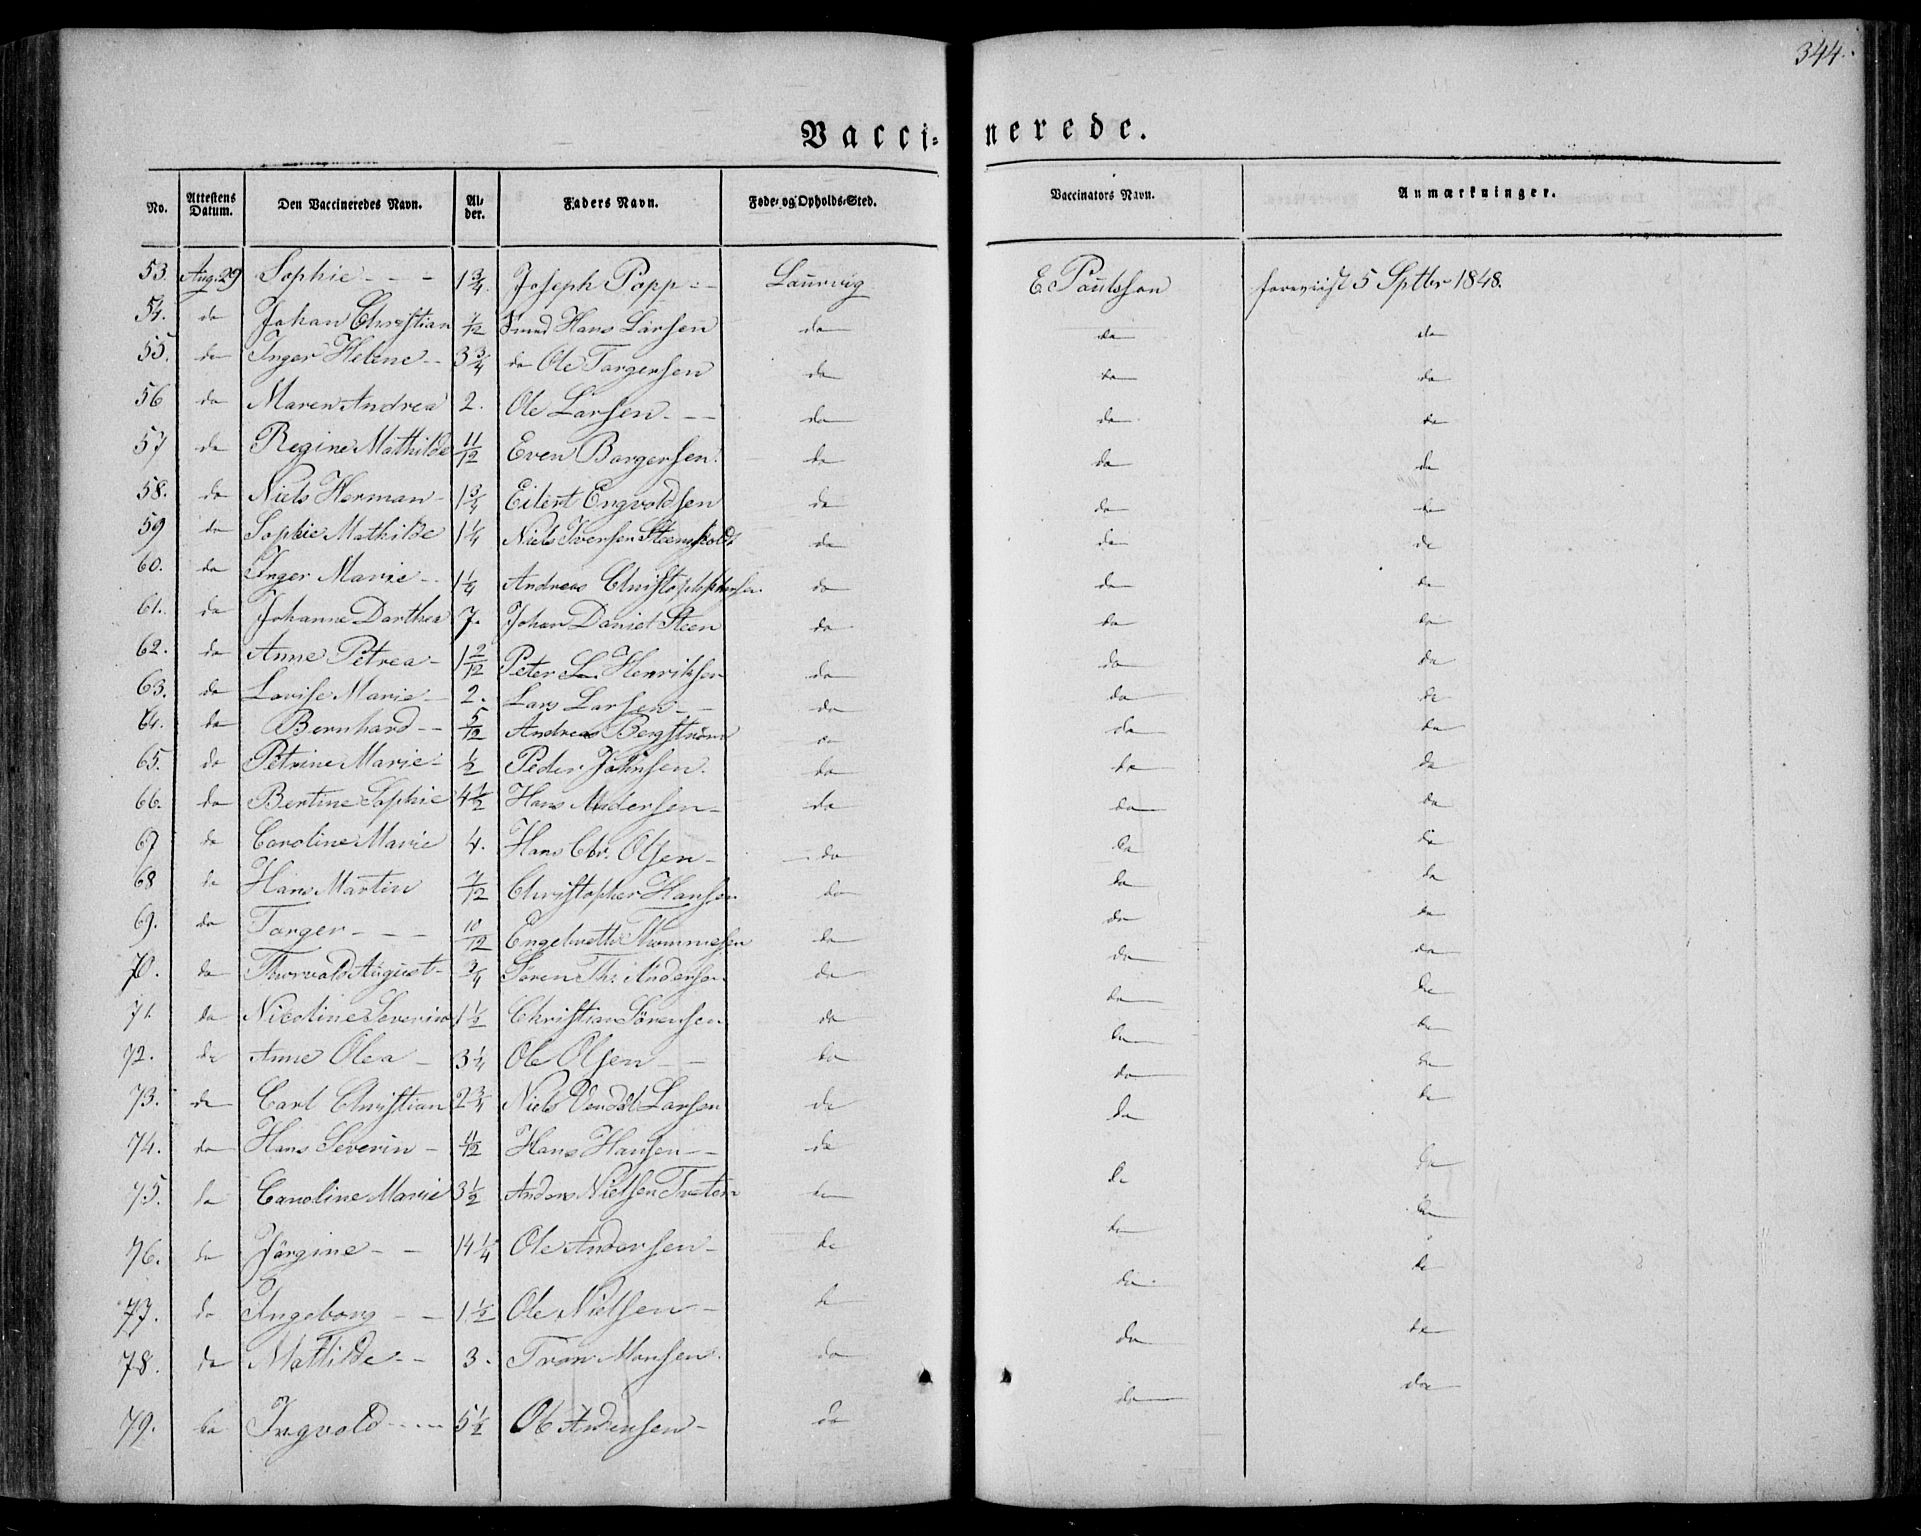 344.
Vacci- nerede.
No. Attestens Datum. Den Vaccineredes Navn. Alder. Faders Navn. Føde- og Opholds-Sted. Vaccinators Navn. Anmærkninger.
53. Aug. 29 Sophie - - - 1 3/4. Joseph Popp - Laurvig E. Paulsson foreviist 5 Sptbr 1848.
54. do Johan Christian 7/12 Smed Hans Larsen do do do
55. do Inger Helene - - 3 3/4 do Ole Torgersen do do do
56 do Maren Andrea 2. Ole Larsen - - do do do
57 do Regine Mathilde 11/12 Even Borgersen. do do do
58. do Niels Herman - 1 3/4 Eilert Engvoldsen do do do
59 do Sophie Mathilde 1 1/4 Niels Iversen Steensholdt do do do
60. do Inger Marie - - 1 1/4 Andreas Christophersen do do do
61. do Johanne Dorthea 7. Johan Daniel Steen do do do
62. do Anne Petrea - 1 2/12 Peter Henriksen do do do
63. do Lovise Marie - 2. Lars Larsen - - do do do
64. do Bernhard - - 5/12 Andreas Bergstrøm do do do
65. do Petrine Marie - 1/2 Peder Johnsen. do do do
66. do Bertine Sophie 4 1/2 Hans Andersen - do do do
67 do Caroline Marie 4. Hans Chr. Olsen - do do do
68 do Hans Martin 7/12 Christopher Hansen do do do
69. do Torger - - - 10/12 Engebreth Thommesen do do do
70. do Thorvald August - 3/4 Søren Th: Andersen do do do
71. do Nicoline Severine 1 1/2 Christian Sørensen do do do
72. do Anne Olea - 3 1/4 Ole Olsen - do do do
73. do Carl Christian 2 3/4 Niels Vendel Larsen do do do
74. do Hans Severin - 11/12 Hans Hansen - - do do do
75. do Caroline Marie 3 1/2 Anders Nielsen Treten do do do
76. do Jørgine - - 14 1/4 Ole Andersen - do do do
77. do Ingeborg - - 1 1/2 Ole Nielsen - do do do
78. do Mathilde - - 3. Tron Monsen. do do do
79. do Ingvold - - - - 5 1/2 Ole Andersen - do